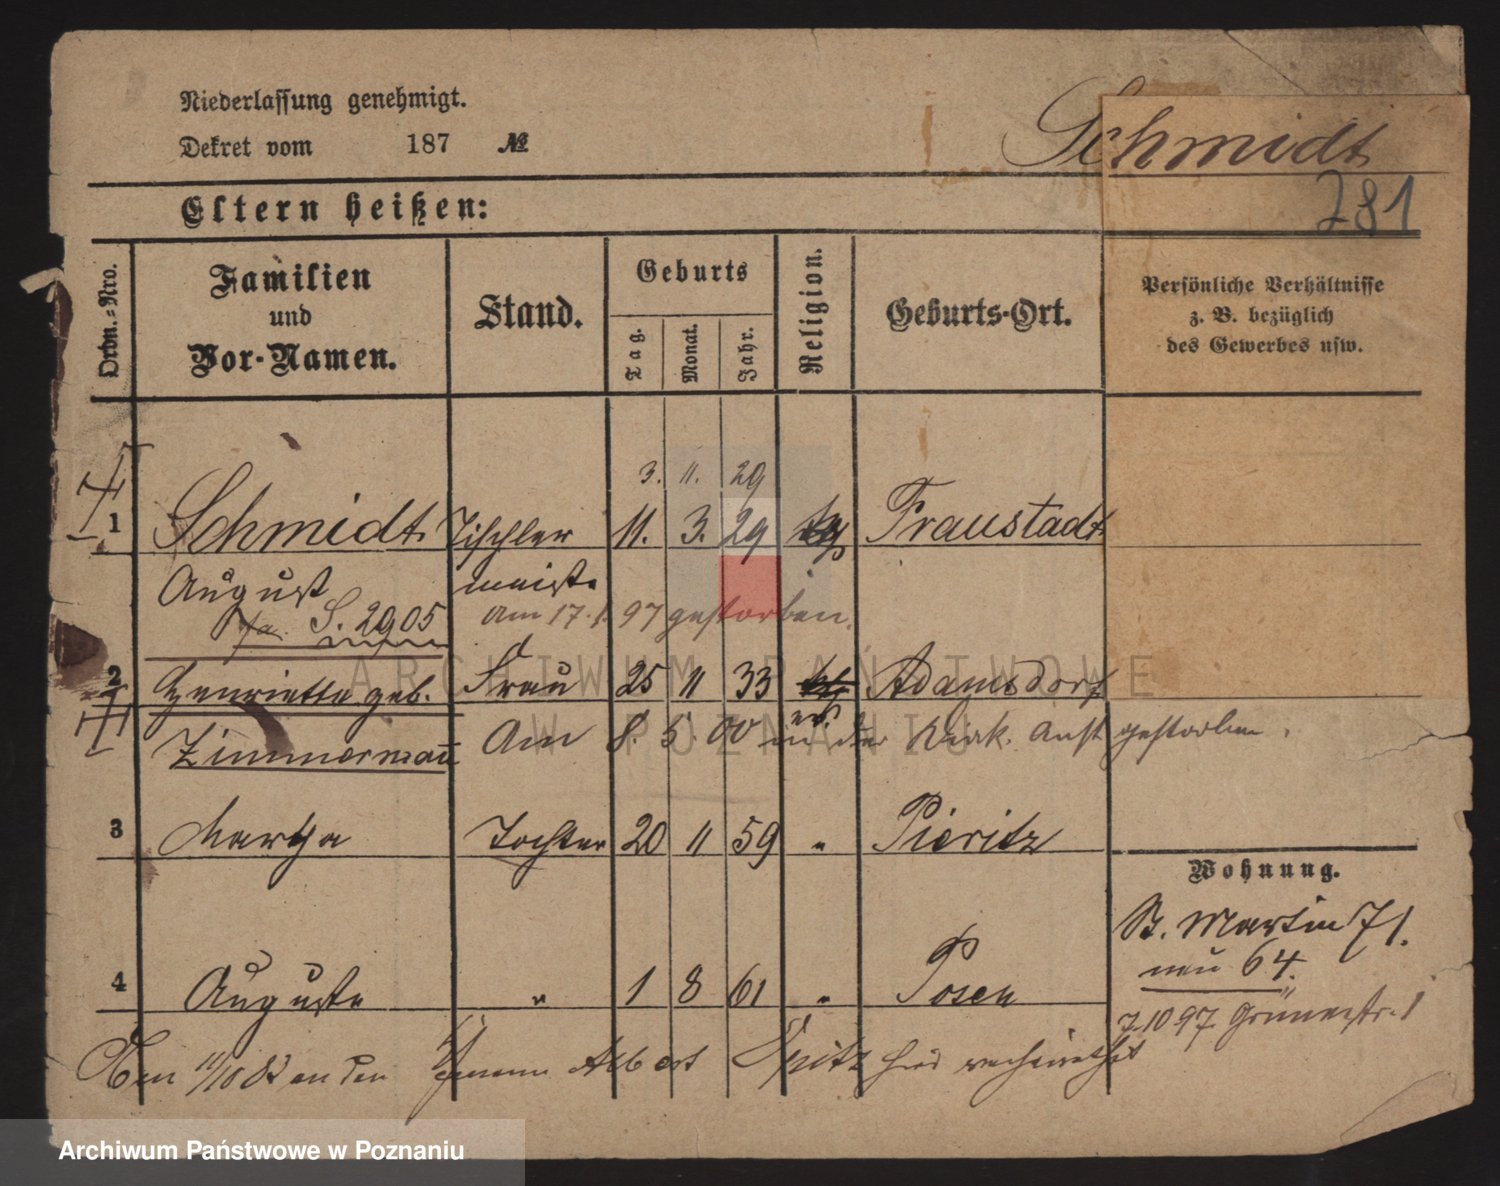 Niederlassung genehmigt.
Dekret vom 187 №
Schmidt
281
Eltern heißen:
Ordn.-Nro.
Familien und Vor-Namen.
Stand.
Geburts
Tag.
Monat.
Jahr.
Religion.
Geburts-Ort.
Persönliche Verhältnisse
z. B. bezüglich
des Gewerbes usw.
3. 11. 29
1 Schmidt Tischler 11. 3. 29 Fraustadt
August meister
S. 2905 am 17. 1. 97 gestorben.
2 Henriette geb. Frau 25 11 33 Adamsdorf
Zimmermann Am 8. 5. 00 in der Diak. Anst. gestorben.
3 Martha Tochter 20 11 59 " Pieritz
Wohnung.
St. Martin 71.
neu 64.
4 Auguste " 1 8 61 " Posen
7.10 97. Grünestr. 1
Den 11/10 82 an den Albert Opitz hier verheirathet
ARCHIWUM PAŃSTWOWE
W POZNANIU
Archiwum Państwowe w Poznaniu